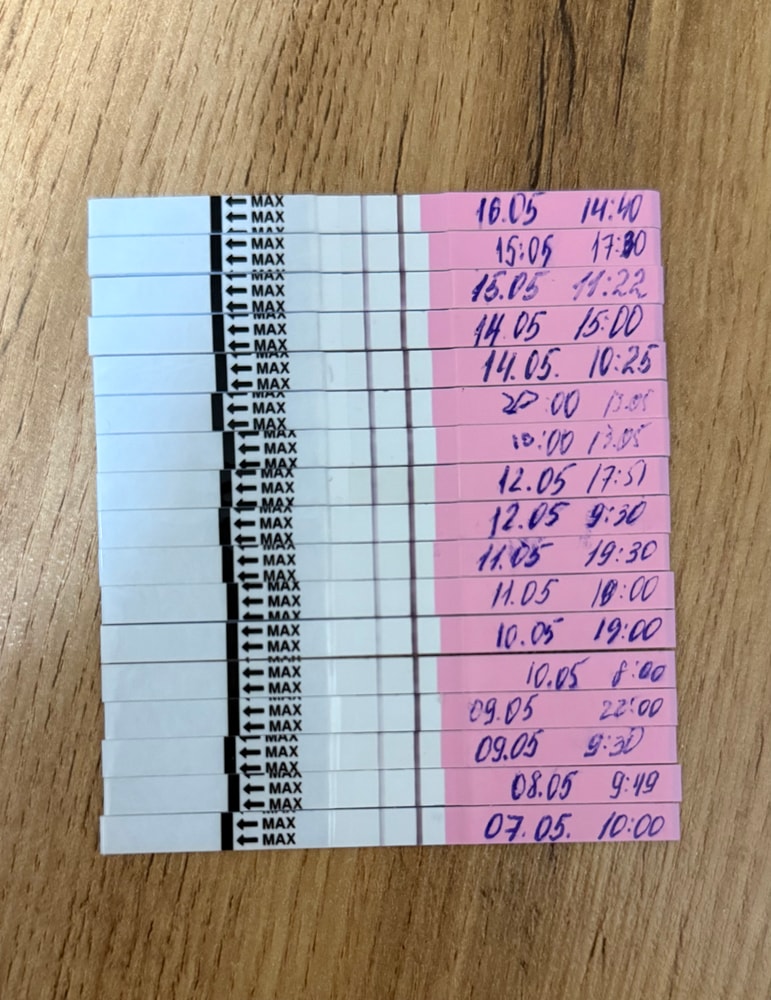 MAX 16.05 14:40
MAX
MAX 15:05 17:30
MAX
MAX 15.05 11:22
MAX
MAX 14.05 15:00
MAX
MAX 14.05. 10:25
MAX
MAX 20:00 13.05
MAX
MAX 10:00 13.05
MAX
MAX 12.05 17:51
MAX
MAX 12.05 9:30
MAX
MAX 11.05 19:30
MAX
MAX 11.05 10:00
MAX
MAX 10.05 19:00
MAX
MAX 10.05 8:00
MAX
MAX 09.05 22:00
MAX
MAX 09.05 9:30
MAX
MAX 08.05 9:49
MAX
MAX 07.05. 10:00
MAX